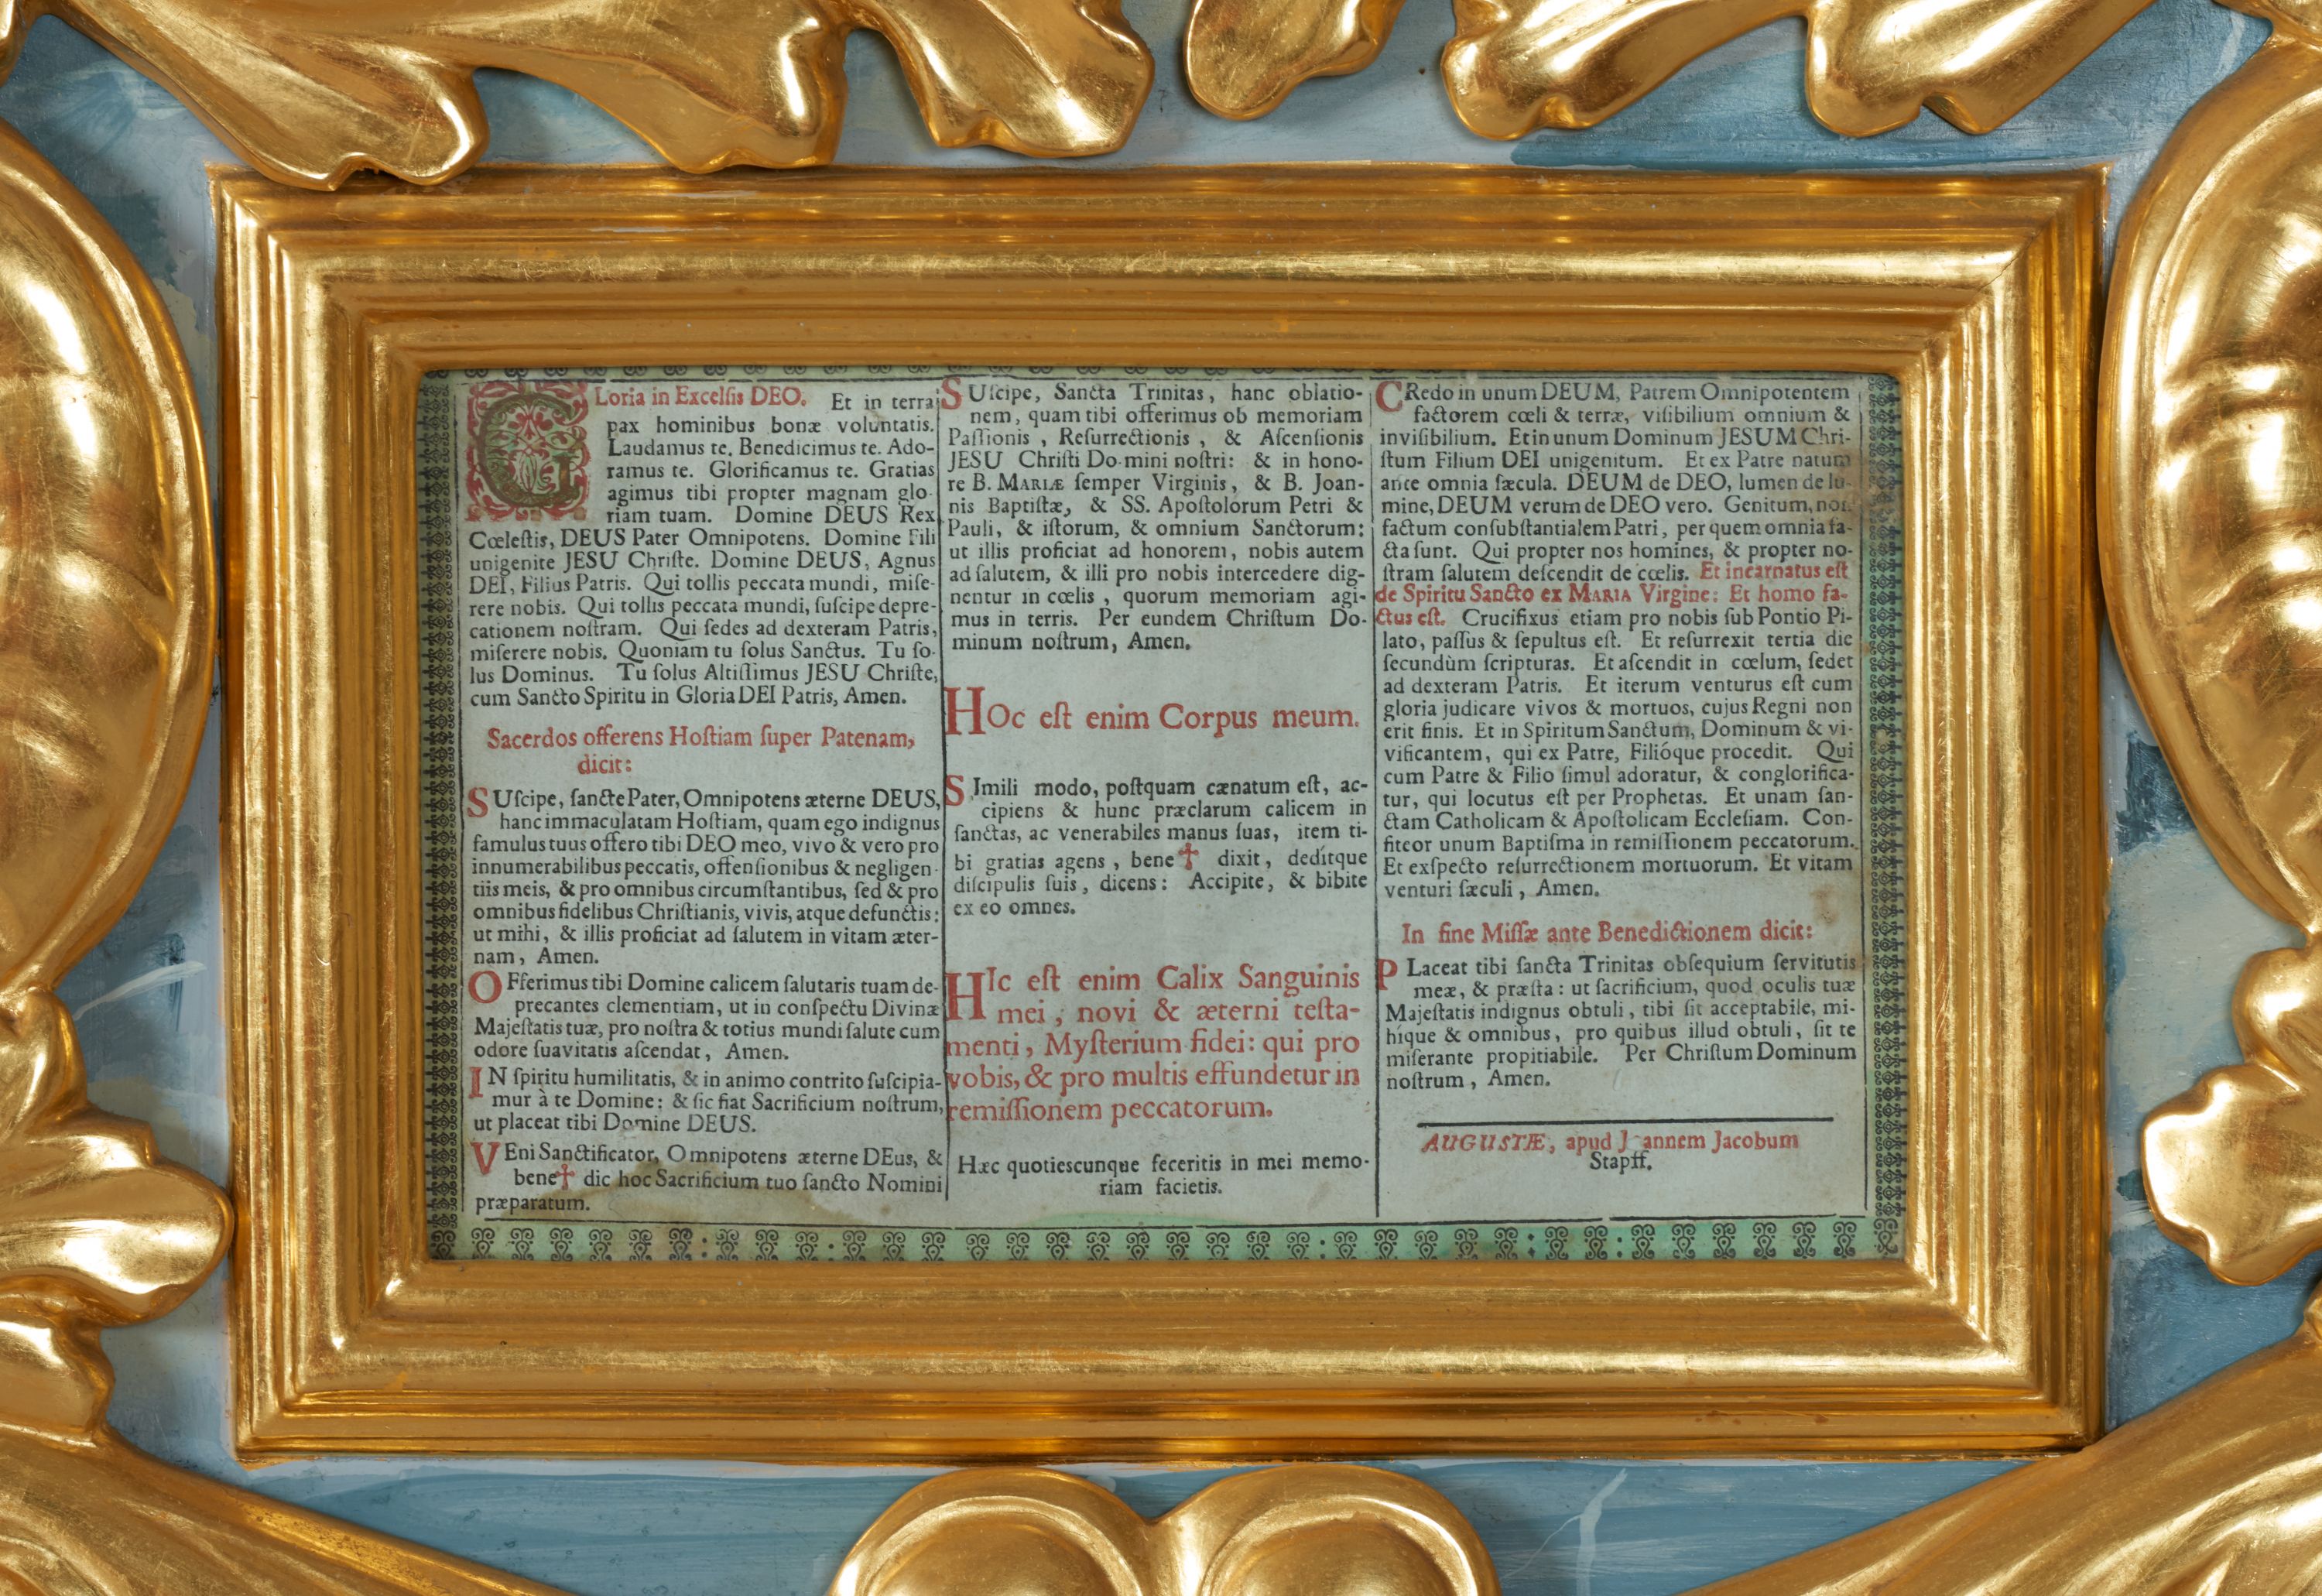 GLoria in Excelſis DEO. Et in terra
pax hominibus bonæ voluntatis.
Laudamus te. Benedicimus te. Ado-
ramus te. Glorificamus te. Gratias
agimus tibi propter magnam glo-
riam tuam. Domine DEUS Rex
Cœleſtis, DEUS Pater Omnipotens. Domine Fili
unigenite JESU Chriſte. Domine DEUS, Agnus
DEI, Filius Patris. Qui tollis peccata mundi, miſe-
rere nobis. Qui tollis peccata mundi, ſuſcipe depre-
cationem noſtram. Qui ſedes ad dexteram Patris,
miſerere nobis. Quoniam tu ſolus Sanctus. Tu ſo-
lus Dominus. Tu ſolus Altiſſimus JESU Chriſte,
cum Sancto Spiritu in Gloria DEI Patris, Amen.
Sacerdos offerens Hoſtiam ſuper Patenam,
dicit:
SUſcipe, ſancte Pater, Omnipotens æterne DEUS,
hanc immaculatam Hoſtiam, quam ego indignus
famulus tuus offero tibi DEO meo, vivo & vero pro
innumerabilibus peccatis, offenſionibus & negligen-
tiis meis, & pro omnibus circumſtantibus, ſed & pro
omnibus fidelibus Chriſtianis, vivis, atque defunctis:
ut mihi, & illis proficiat ad ſalutem in vitam æter-
nam, Amen.
OFferimus tibi Domine calicem ſalutaris tuam de-
precantes clementiam, ut in conſpectu Divinæ
Majeſtatis tuæ, pro noſtra & totius mundi ſalute cum
odore ſuavitatis aſcendat, Amen.
IN ſpiritu humilitatis, & in animo contrito ſuſcipia-
mur à te Domine: & ſic fiat Sacrificium noſtrum,
ut placeat tibi Domine DEUS.
VEni Sanctificator, Omnipotens æterne DEus, &
bene✝ dic hoc Sacrificium tuo ſancto Nomini
præparatum.
SUſcipe, Sancta Trinitas, hanc oblatio-
nem, quam tibi offerimus ob memoriam
Paſſionis, Reſurrectionis, & Aſcenſionis
JESU Chriſti Do-mini noſtri: & in hono-
re B. MARIÆ ſemper Virginis, & B. Joan-
nis Baptiſtæ, & SS. Apoſtolorum Petri &
Pauli, & iſtorum, & omnium Sanctorum:
ut illis proficiat ad honorem, nobis autem
ad ſalutem, & illi pro nobis intercedere dig-
nentur in cœlis, quorum memoriam agi-
mus in terris. Per eundem Chriſtum Do-
minum noſtrum, Amen.
HOc eſt enim Corpus meum.
SImili modo, poſtquam cænatum eſt, ac-
cipiens & hunc præclarum calicem in
ſanctas, ac venerabiles manus ſuas, item ti-
bi gratias agens, bene✝ dixit, dedítque
diſcipulis ſuis, dicens: Accipite, & bibite
ex eo omnes.
HIc eſt enim Calix Sanguinis
mei, novi & æterni teſta-
menti, Myſterium fidei: qui pro
vobis, & pro multis effundetur in
remiſſionem peccatorum.
Hæc quotiescunque feceritis in mei memo-
riam facietis.
CRedo in unum DEUM, Patrem Omnipotentem
factorem cœli & terræ, viſibilium omnium &
inviſibilium. Et in unum Dominum JESUM Chri-
ſtum Filium DEI unigenitum. Et ex Patre natum
ante omnia ſæcula. DEUM de DEO, lumen de lu-
mine, DEUM verum de DEO vero. Genitum, non
factum conſubſtantialem Patri, per quem omnia fa-
cta ſunt. Qui propter nos homines, & propter no-
ſtram ſalutem deſcendit de cœlis. Et incarnatus eſt
de Spiritu Sancto ex MARIA Virgine: Et homo fa-
ctus eſt. Crucifixus etiam pro nobis ſub Pontio Pi-
lato, paſſus & ſepultus eſt. Et reſurrexit tertia die
ſecundùm ſcripturas. Et aſcendit in cœlum, ſedet
ad dexteram Patris. Et iterum venturus eſt cum
gloria judicare vivos & mortuos, cujus Regni non
erit finis. Et in Spiritum Sanctum, Dominum & vi-
vificantem, qui ex Patre, Filióque procedit. Qui
cum Patre & Filio ſimul adoratur, & conglorifica-
tur, qui locutus eſt per Prophetas. Et unam ſan-
ctam Catholicam & Apoſtolicam Eccleſiam. Con-
fiteor unum Baptiſma in remiſſionem peccatorum.
Et exſpecto reſurrectionem mortuorum. Et vitam
venturi ſæculi, Amen.
In fine Miſſæ ante Benedictionem dicit:
PLaceat tibi ſancta Trinitas obſequium ſervitutis
meæ, & præſta: ut ſacrificium, quod oculis tuæ
Majeſtatis indignus obtuli, tibi ſit acceptabile, mi-
híque & omnibus, pro quibus illud obtuli, ſit te
miſerante propitiabile. Per Chriſtum Dominum
noſtrum, Amen.
AUGUSTÆ, apud J annem Jacobum
Stapff.